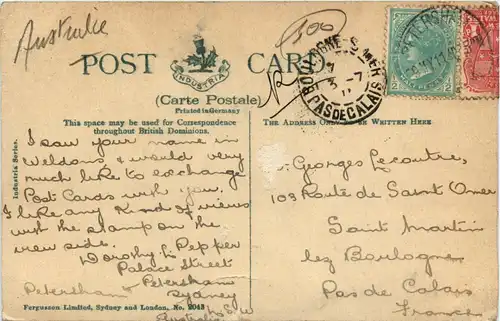 Australie
500
POST CARD
INDUSTRIA
(Carte Postale)
Printed in Germany
BOULOGNE-S-MER
PAS DE CALAIS
This space may be used for Correspondence
throughout British Dominions.
THE ADDRESS ONLY TO BE WRITTEN HERE
Industria Series.
I saw your name in
Weldons & would very
much like to exchange
Post Cards with you.
I like any kind of views
with the stamp on the
view side.
Dorothy L. Pepper
Palace Street
Petersham
Sydney
Petersham
Australia
Georges Lecoutre,
103 Route de Saint Omer
Saint Martin
lez Boulogne
Pas de Calais
France
Ferguson Limited, Sydney and London, No. 2043